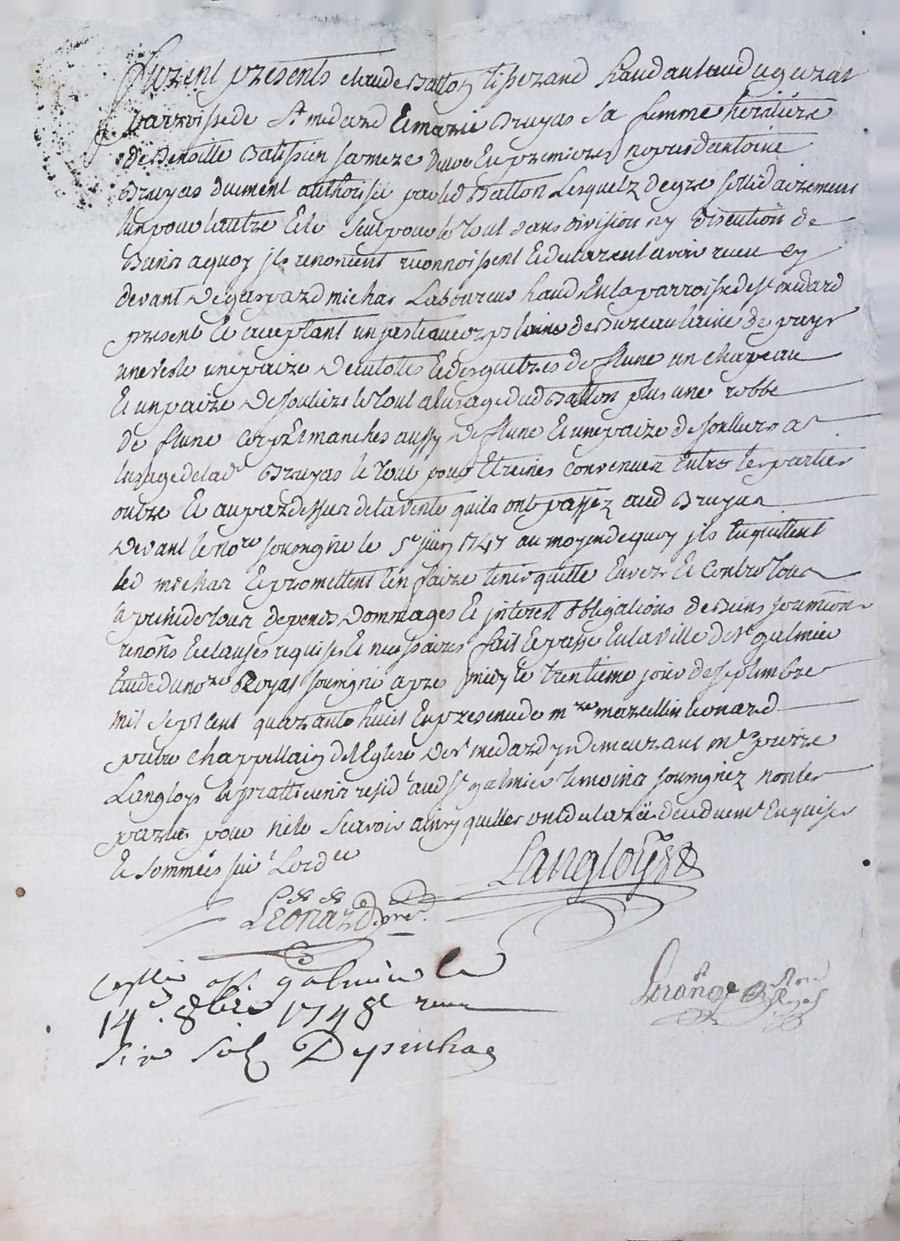 Furent presents claude Batton tisserand hand au lieu de
parroisse de St medard Et marie Bruyas sa femme heritiere
de Benoitte Batissier sa mere veuve En premieres nopces d'antoine
Bruyas duement authorisée par led Batton Lesquelz de gre sollidairement
lun pour lautre Et le seul pour le tout sans division ny discution de
Biens a quoy ils renoncent reconnoissent Et declarent avoir receu cy
devant De gaspard michas Laboureur hand En la parroisse de st medard
present Et acceptant un justeaucorps de Bureau laine de pays
une veste une paire De culottes Et des guetres de flune un chapeau
Et un paire De souliers le tout a lusage dud Batton plus une robbe
De flune corp Et manches aussy De flune Et une paire de soulliers a
lusage de lade Bruyas le tout pour Etreines convenues Entre les parties
outre Et au par dessus de la vente quils ont passez aud
Devant le nore soussigne le 5e juin 1747 au moyen de quoy ils En quittent
led michas Et promettent len faire tenir quitte Envers Et contre tous
a peine de tous depens Dommages Et interest obligations de Biens soumions
renons Et clauses requises Et necessaires fait Et passé En la ville de st galmier
Etude du nore Royal soussigné apres midy le trentieme jour de septembre
mil sept cent quarante huit En presence de mre marcellin Leonard
pretre chappellain de lEglise de st medard y demeurant me pierre
Langloys praticiens residt aud st galmier temoins soussignez non les
parties pour ne le scavoir ainsy quelles ont declaré de ce duemt Enquises
Et sommées suivt Lordce
Langloys
Leonard pre
Controllé a st galmier le
14e 8bre 1748 receu
six sols